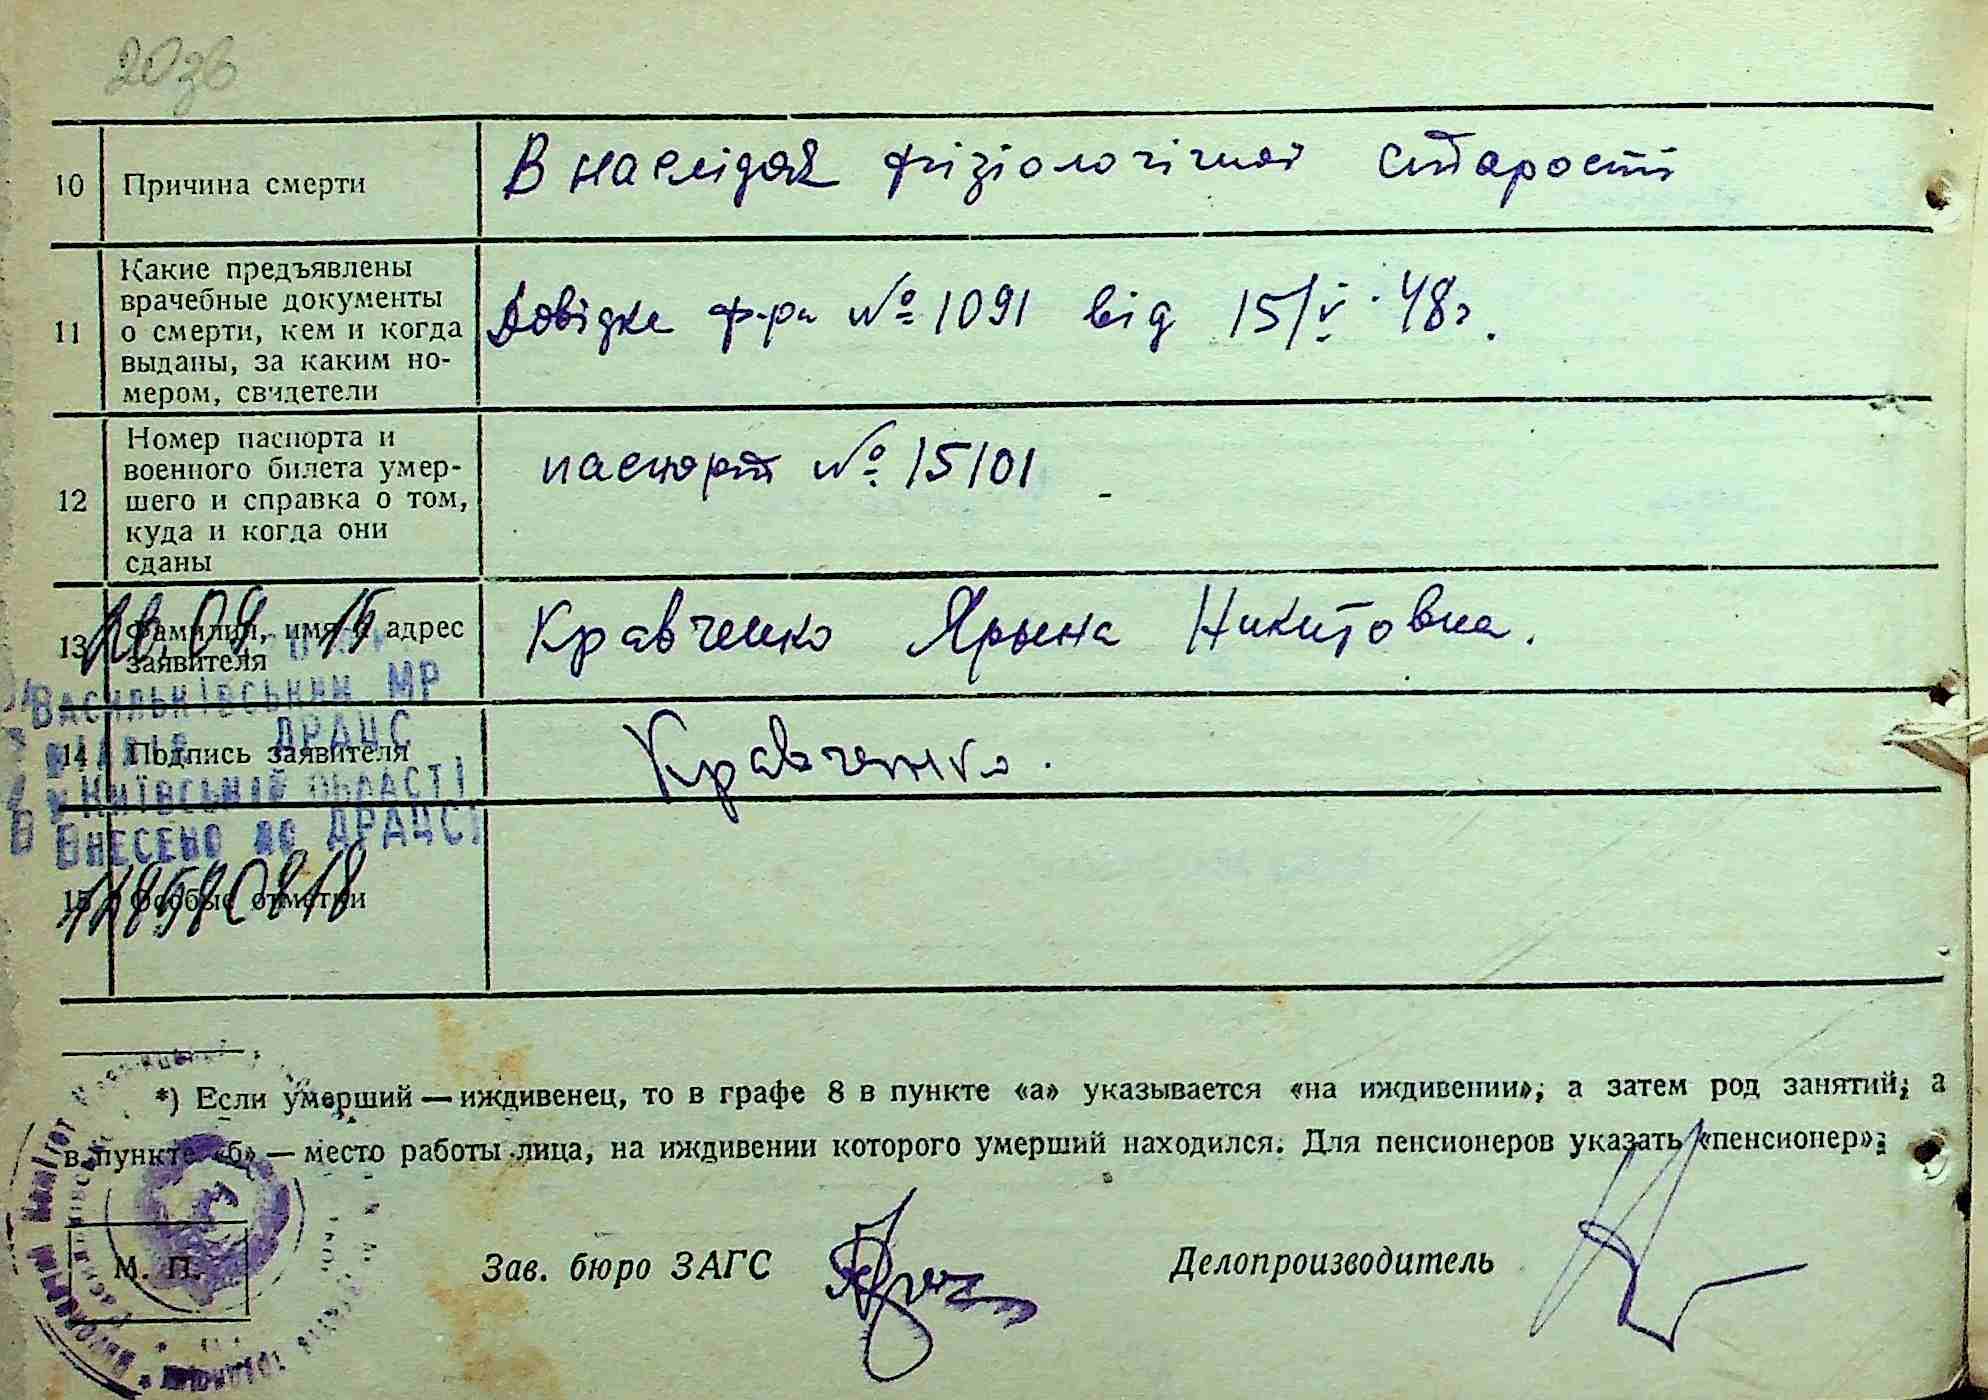 20зв
10 Причина смерти
В наслідок фізіологічної старості
11 Какие предъявлены
врачебные документы
о смерти, кем и когда
выданы, за каким но-
мером, свидетели
Довідка ф-ра № 1091 від 15/V 48г.
12 Номер паспорта и
военного билета умер-
шего и справка о том,
куда и когда они
сданы
паспорт № 15101
13 Фамилия, имя и адрес
заявителя
Кравченко Ярына Никитовна.
Васильківський МР
ДРАЦС
14 Подпись заявителя
Кравченко.
у Київській області
Внесено до ДРАЦС
15 Особые отметки
*) Если умерший — иждивенец, то в графе 8 в пункте «а» указывается «на иждивении», а затем род занятий, а
в пункте «б» — место работы лица, на иждивении которого умерший находился. Для пенсионеров указать «пенсионер»;
М. П.
Зав. бюро ЗАГС
Делопроизводитель